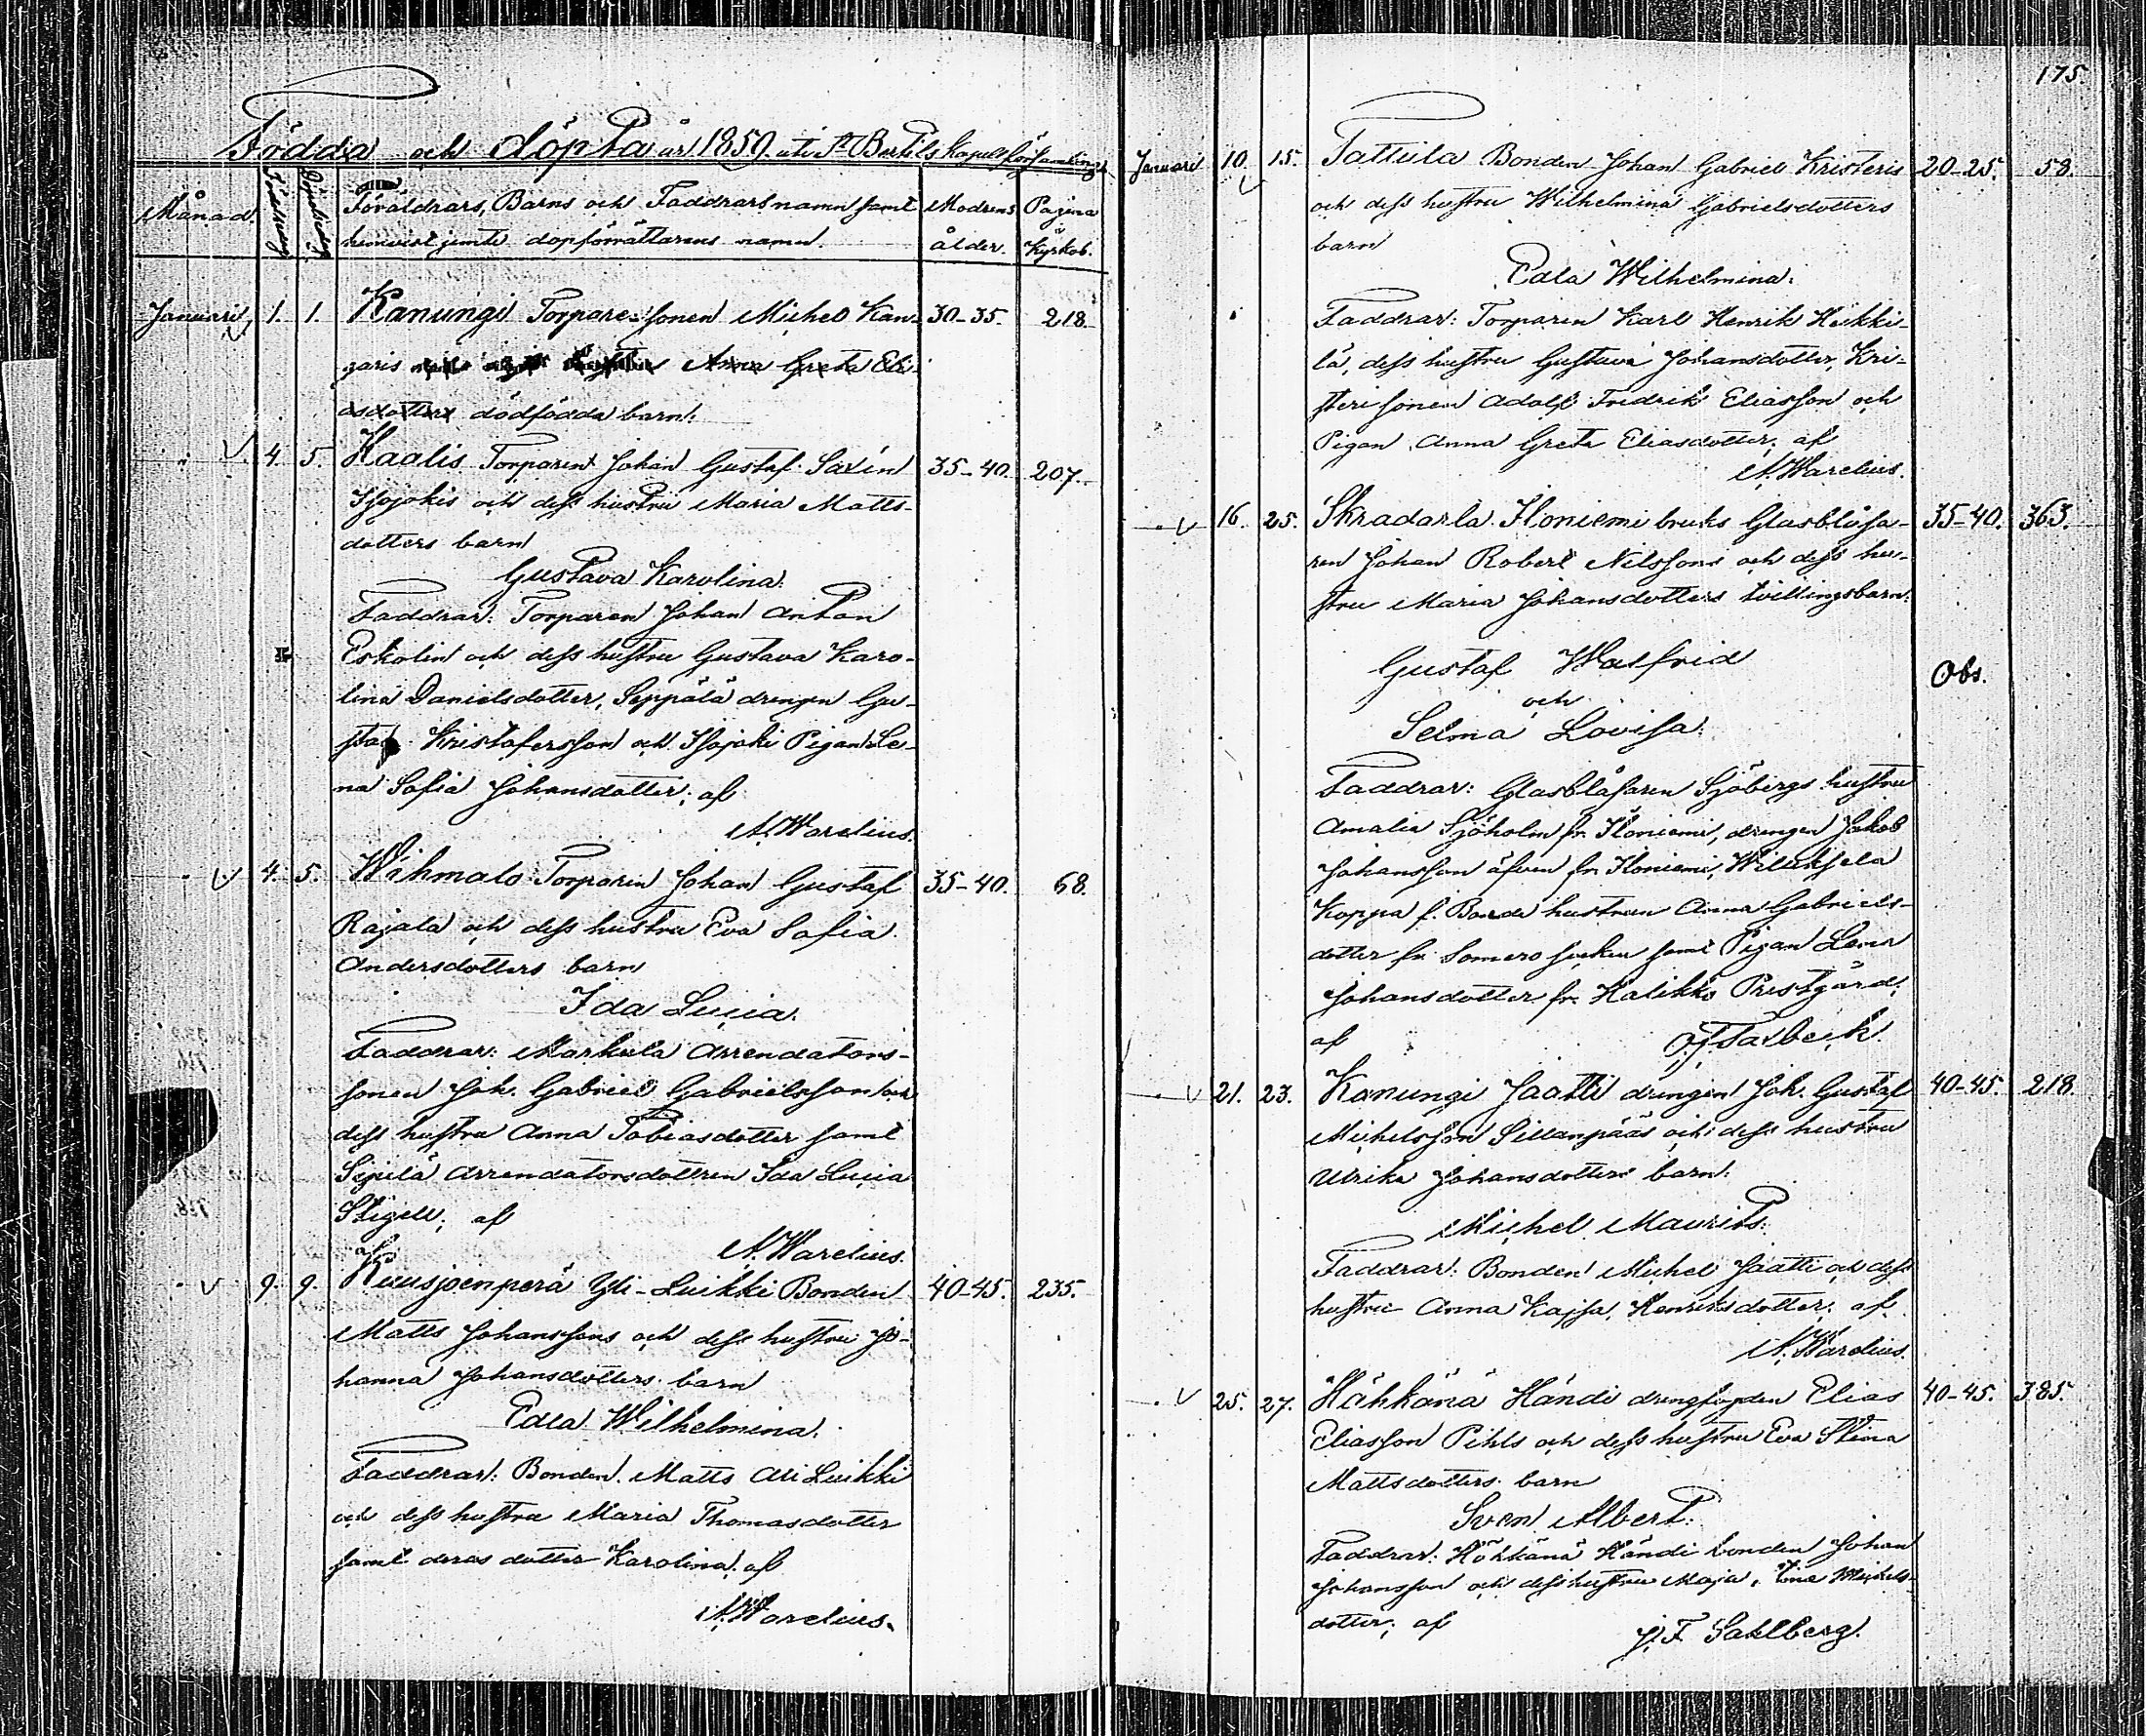 Födda och döpta år 1850 uti St Bertils kapellförsamling.
Månad. Födelsedag Föräldrars, Barns och Faddrars namn samt Modrens Pagina
hemvist jemte dopförrättarens namn. ålder. i Kyrkob.
Januari 1. 1. Kanungi Torpare-sonen Michel Kan- 30-35. 218.
garis Anna Greta Eli-
asdotters dödfödda barn.
4. 5. Haalis Torparen Johan Gustaf Saxén 35-40. 207.
Isojokis och dess hustru Maria Matts-
dotters barn
Gustava Karolina.
Faddrar: Torparen Johan Anton
Eskolin och dess hustru Gustava Karo-
lina Danielsdotter, Seppälä drengen Gu-
staf Kristofersson och Isojoki Pigan Le-
na Sofia Johansdotter; af
A. Warelius.
4. 5. Wihmalo Torparen Johan Gustaf 35-40. 68.
Rajala och dess hustru Eva Sofia
Andersdotters barn
Ida Lucia.
Faddrar: Markula Arrendators-
sonen Joh. Gabriel Gabrielsson och
dess hustru Anna Tobiasdotter samt
Sipilä Arrendatorsdottren Ida Lucia
Stigell; af
A. Warelius.
9. 9. Kuusjoenperä Yli-Luikki Bonden 40-45. 235.
Matts Johanssons och dess hustru Jo-
hanna Johansdotters barn
Edla Wilhelmina.
Faddrar: Bonden Matts Ali Luikki
och dess hustru Maria Thomasdotter
samt deras dotter Karolina; af
A. Warelius.
175.
Januari 10. 15. Tattula Bonden Johan Gabriel Kristeris 20-25. 58.
och dess hustru Wilhelmina Gabrielsdotters
barn
Edla Wilhelmina.
Faddrar: Torparen Karl Henrik Heikki-
lä, dess hustru Gustava Johansdotter, Kri-
steri sonen Adolf Fredrik Eliasson och
Pigan Anna Greta Eliasdotter; af
A. Warelius.
16. 25. Skradarla Iloniemi bruks Glasblåsa- 35-40. 363.
ren Johan Robert Nilssons och dess hu-
stru Maria Johansdotters tvillingsbarn:
Gustaf Walfrid
och Obs.
Selma Lovisa.
Faddrar: Glasblåsaren Sjöbergs hustru
Amalia Sjöholm fr. Iloniemi, drengen Jakob
Johansson äfven fr. Iloniemi, Wiluksela
Koppa f. Bonde hustrun Anna Gabriels-
dotter fr. Somero socken samt Pigan Lena
Johansdotter fr. Halikko Prestgård;
af
21. 23. Kanungi Jaatti drengen Joh. Gustaf 40-45. 218.
Michelsson Sillanpääs och dess hustru
Ulrika Johansdotters barn.
Michel Maurits.
Faddrar: Bonden Michel Jaatti och dess
hustru Anna Kajsa Henriksdotter; af
A. Warelius.
25. 27. Hähkänä Händi drengfogden Elias 40-45. 385.
Eliasson Pihls och dess hustru Eva Stina
Mattsdotters barn
Sven Albert.
Faddrar: Hähkänä Händi bonden Johan
Johansson och dess hustru Maja Michels-
dotter; af
J. F. Sahlberg.